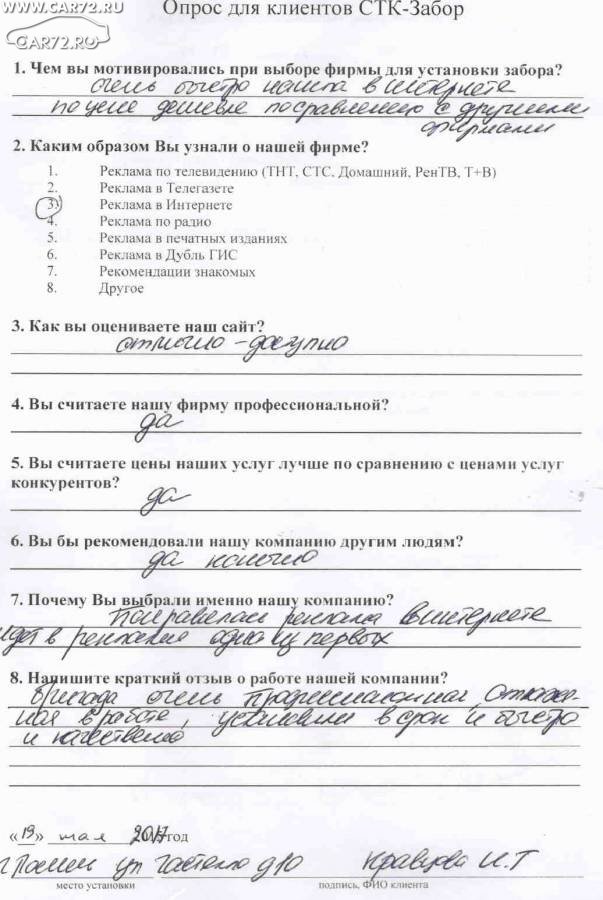 WWW.CAR72.RU
CAR72.RU
Опрос для клиентов СТК-Забор
1. Чем вы мотивировались при выборе фирмы для установки забора?
очень быстро нашла в интернете
по цене дешевле по сравнению с другими
фирмами
2. Каким образом Вы узнали о нашей фирме?
1. Реклама по телевидению (ТНТ, СТС, Домашний, РенТВ, Т+В)
2. Реклама в Телегазете
3. Реклама в Интернете
4. Реклама по радио
5. Реклама в печатных изданиях
6. Реклама в Дубль ГИС
7. Рекомендации знакомых
8. Другое
3. Как вы оцениваете наш сайт?
отлично - доступно
4. Вы считаете нашу фирму профессиональной?
да
5. Вы считаете цены наших услуг лучше по сравнению с ценами услуг
конкурентов?
да
6. Вы бы рекомендовали нашу компанию другим людям?
да конечно
7. Почему Вы выбрали именно нашу компанию?
Понравилась реклама в интернете
идет в рекламе одна из первых
8. Напишите краткий отзыв о работе нашей компании?
Бригада очень профессиональная, отлажен-
ная в работе, установили в срок и быстро
и качественно
«19» мая 2017 год
ул Гастелло д10 Кравцова И.Т
место установки подпись, ФИО клиента